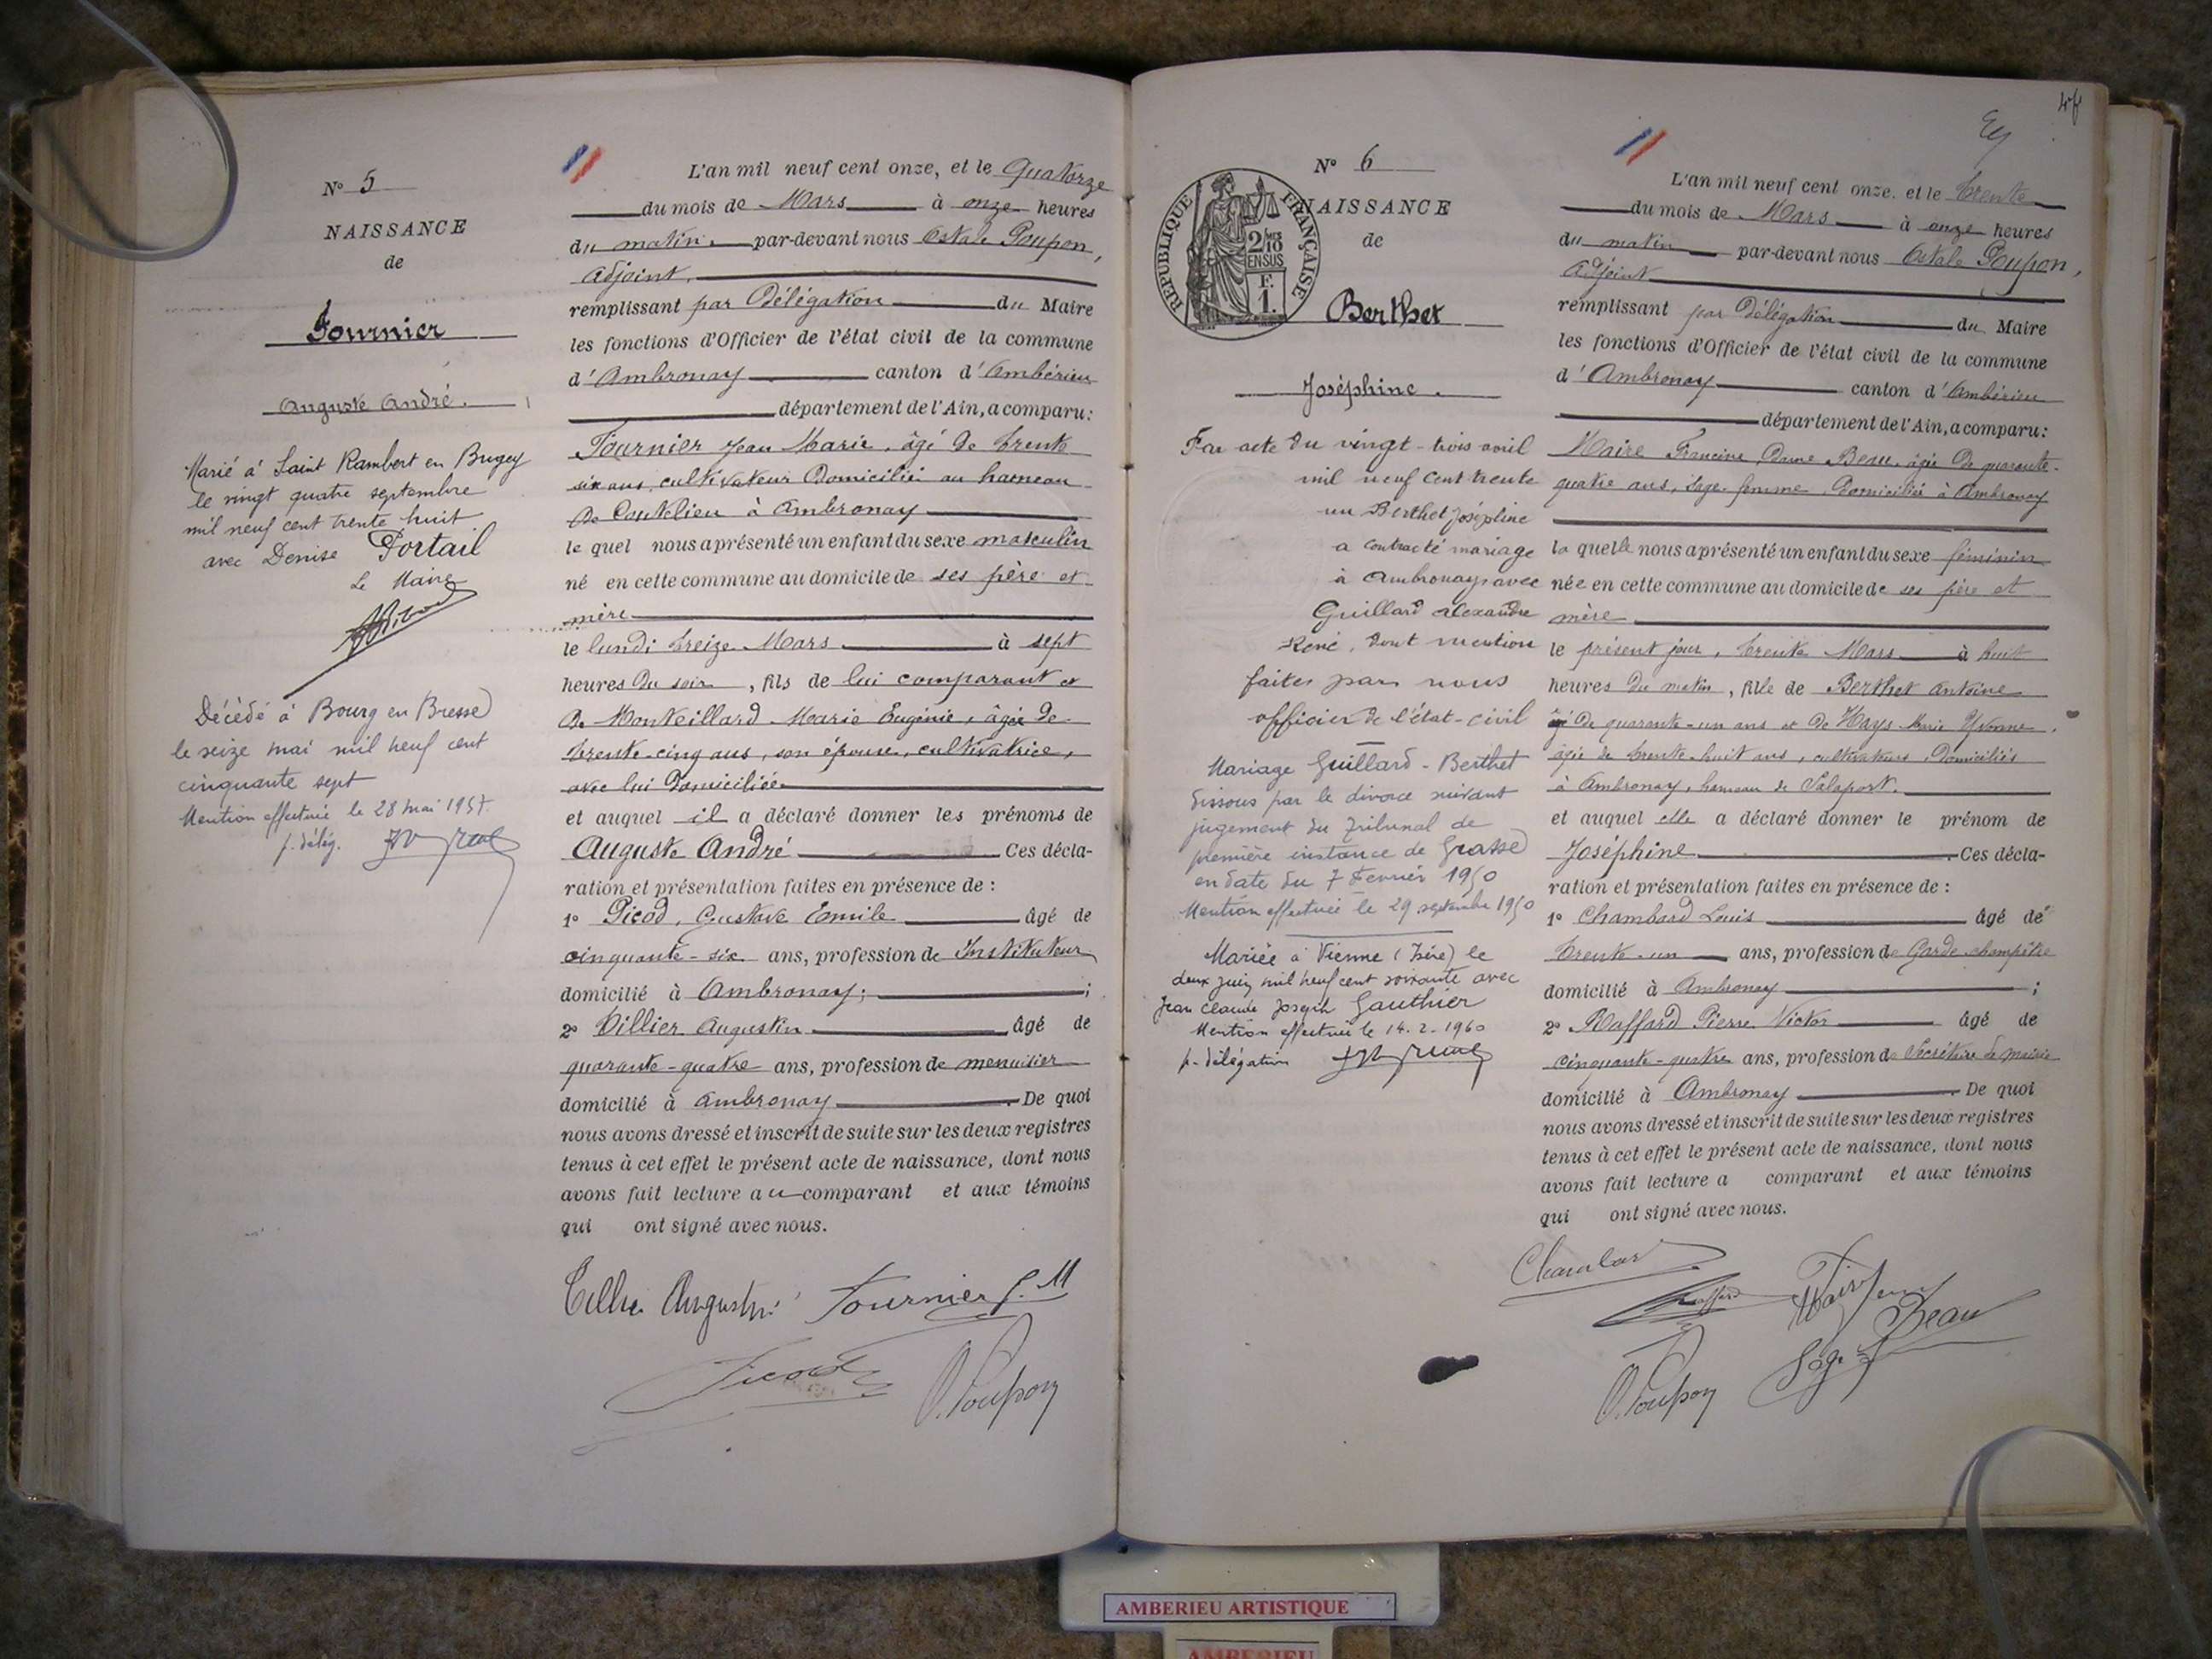 N° 5
NAISSANCE
de
Fournier
Auguste André.
Marié à Saint Rambert en Bugey
le vingt quatre septembre
mil neuf cent trente huit
avec Denise Portail
Le Maire
Décédé à Bourg en Bresse
le seize mai mil neuf cent
cinquante sept
Mention effectuée le 28 mai 1957.
p. délég.
L'an mil neuf cent onze, et le Quatorze
du mois de Mars à onze heures
du matin. par-devant nous Octale Poupon,
adjoint,
remplissant par Délégation du Maire
les fonctions d'Officier de l'état civil de la commune
d'Ambronay canton d'Ambérieu
département de l'Ain, a comparu:
Fournier Jean Marie, âgé de trente
six ans, cultivateur Domicilié au hameau
de Coutelieu à Ambronay
le quel nous a présenté un enfant du sexe masculin
né en cette commune au domicile de ses père et
mère
le lundi treize Mars à sept
heures du soir, fils de lui comparant et
de Monteillard Marie Eugénie, âgée de
trente-cinq ans, son épouse, cultivatrice,
avec lui Domiciliée
et auquel il a déclaré donner les prénoms de
Auguste André Ces décla-
ration et présentation faites en présence de :
1° Picod, Gustave Emile âgé de
cinquante-six ans, profession de Instituteur
domicilié à Ambronay; ;
2° Tillier Augustin âgé de
quarante-quatre ans, profession de menuisier
domicilié à Ambronay De quoi
nous avons dressé et inscrit de suite sur les deux registres
tenus à cet effet le présent acte de naissance, dont nous
avons fait lecture au comparant et aux témoins
qui ont signé avec nous.
Augustin Fournier J. M
Picod O. Poupon
47
N° 6
NAISSANCE
de
RÉPUBLIQUE FRANÇAISE
2/10 EN SUS
F. 1.
Berthet
Joséphine.
Par acte du vingt-trois avril
mil neuf cent trente
un Berthet Joséphine
a contracté mariage
à Ambronay avec
Guillard Alexandre
René, dont mention
faites par nous
officier de l'état-civil
Mariage Guillard - Berthet
dissous par le divorce suivant
jugement du Tribunal de
première instance de Grasse
en date du 7 Février 1950
Mention effectuée le 29 septembre 1950
Mariée à Vienne (Isère) le
deux juin mil neuf cent soixante avec
Jean Claude Joseph Gauthier
Mention effectuée le 14.2.1960
p. délégation
L'an mil neuf cent onze, et le trente
du mois de Mars à onze heures
du matin par-devant nous Octale Poupon,
Adjoint
remplissant par Délégation du Maire
les fonctions d'Officier de l'état civil de la commune
d'Ambronay canton d'Ambérieu
département de l'Ain, a comparu:
Maire Francine Dame Beau, âgée de quarante-
quatre ans, sage-femme, Domiciliée à Ambronay
la quelle nous a présenté un enfant du sexe féminin
née en cette commune au domicile de ses père et
mère
le présent jour, trente Mars à huit
heures du matin, fille de Berthet Antoine
âgé de quarante-un ans et de Hays Marie Yvonne,
âgée de trente-huit ans, cultivateurs, Domiciliés
à Ambronay, hameau de Salaport.
et auquel elle a déclaré donner le prénom de
Joséphine Ces décla-
ration et présentation faites en présence de :
1° Chambard Louis âgé de
trente-un ans, profession de Garde champêtre
domicilié à Ambronay ;
2° Raffard Pierre Victor âgé de
cinquante-quatre ans, profession de Secrétaire de mairie
domicilié à Ambronay De quoi
nous avons dressé et inscrit de suite sur les deux registres
tenus à cet effet le présent acte de naissance, dont nous
avons fait lecture a comparant et aux témoins
qui ont signé avec nous.
Raffard
Beau
O. Poupon
AMBERIEU ARTISTIQUE
AMBERIEU